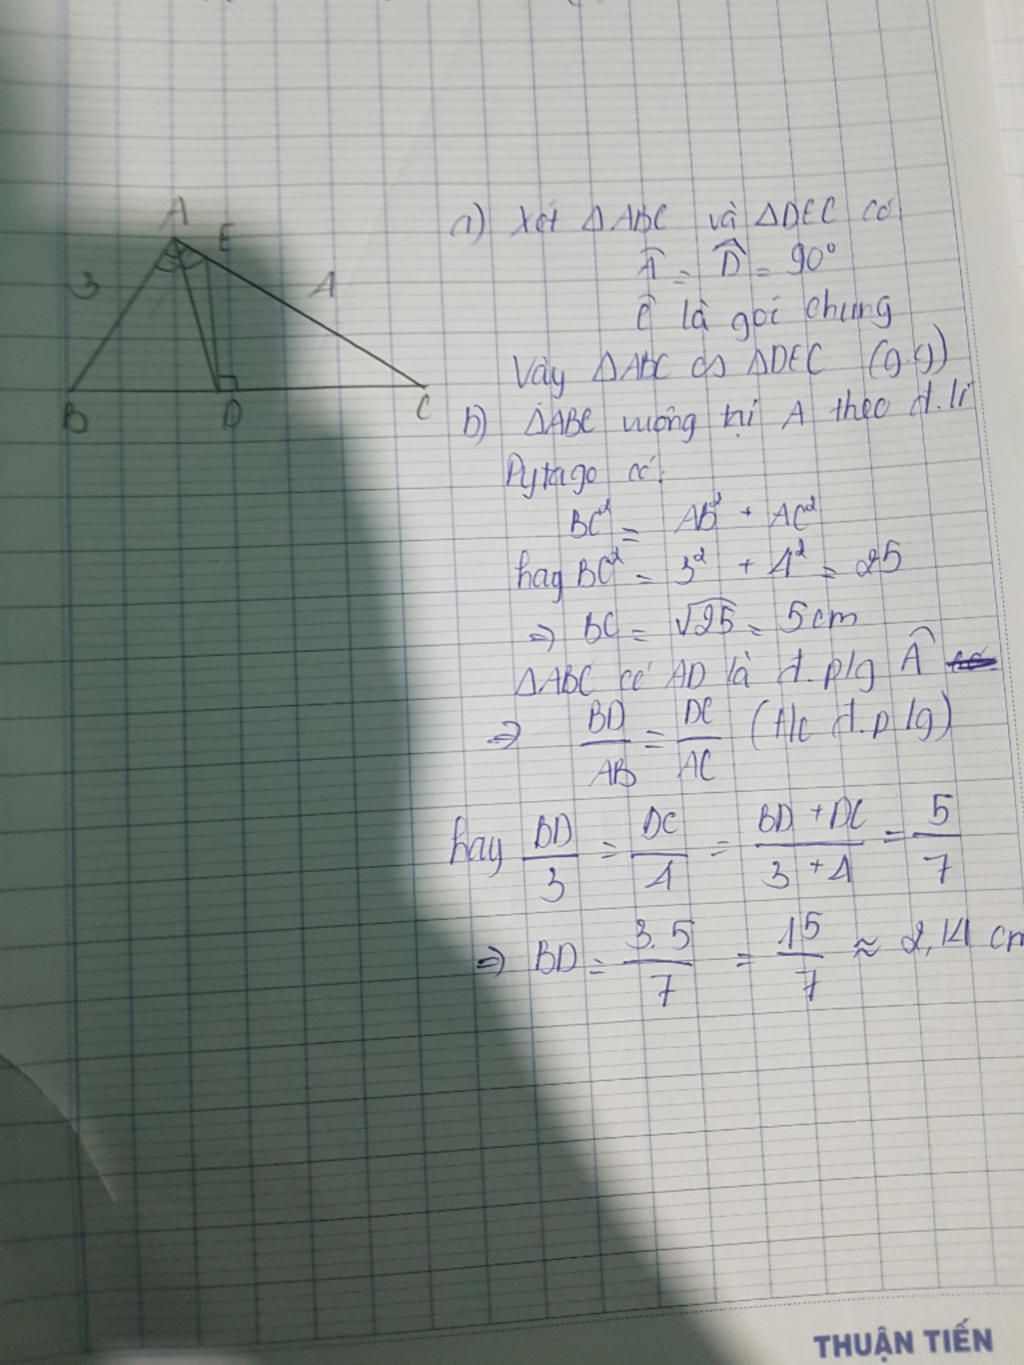 A
E
3
4
B
D
C
a) Xét ΔABC và ΔDEC có
Â = D̂ = 90°
Ĉ là goí chung
Vậy ΔABC ∽ ΔDEC (g.g)
b) ΔABC vuông tại A theo đ.lí
Pytago có:
BC² = AB² + AC²
hay BC² = 3² + 4² = 25
⇒ BC = √25 = 5cm
ΔABC có AD là đ.p/g Â
⇒ BD/AB = DC/AC (t/c đ.p/g)
hay BD/3 = DC/4 = BD + DC/3 + 4 = 5/7
⇒ BD = 3.5/7 = 15/7 ≈ 2,14 cm
THUẬN TIẾN